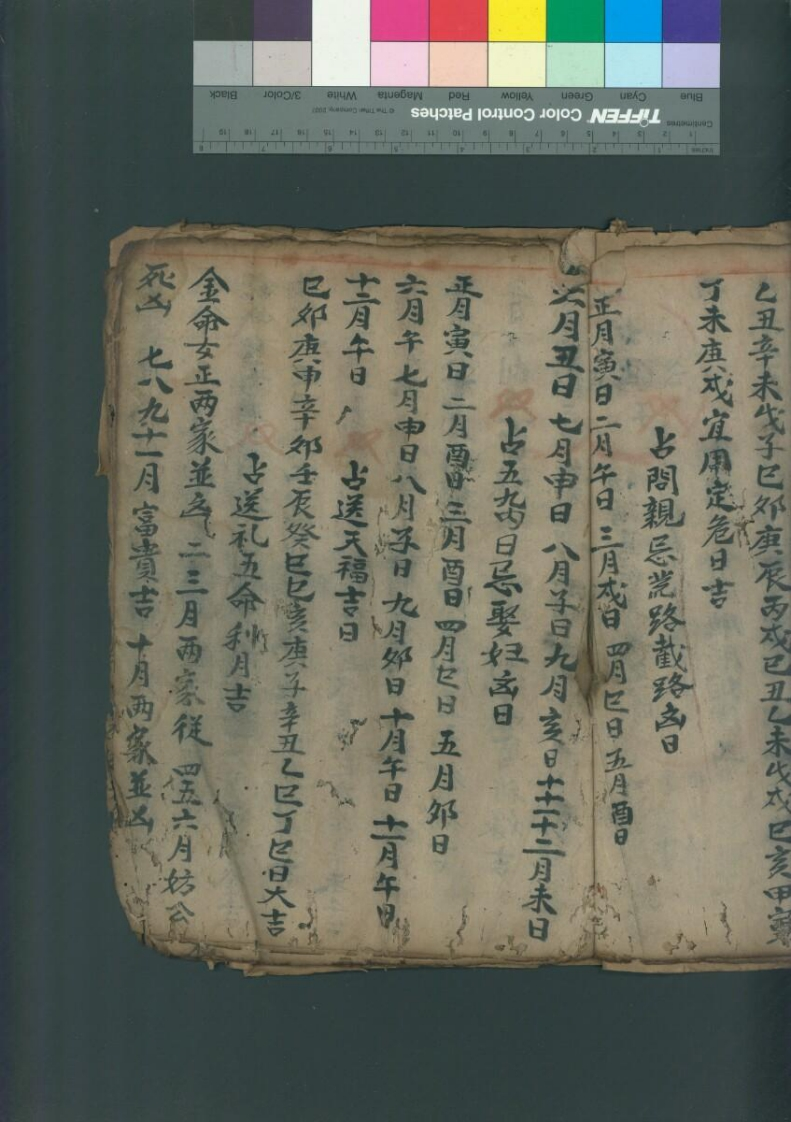 乙丑辛未戊子巳夘庚辰丙戌巳丑乙未戊戌巳亥甲寅
丁未庚戌宜用定危日吉
占問親忌荒路截路凶日
正月寅日 二月午日 三月戌日 四月巳日 五月酉日
六月丑日 七月申日 八月子日 九月亥日 十十一十二月未日
占五九丙日忌娶妇凶日
正月寅日 二月酉日 三月酉日 四月巳日 五月夘日
六月午 七月申日 八月子日 九月夘日 十月午日 十一月午日
十二月午日
占送天福吉日
巳夘庚申辛夘壬辰癸巳巳亥庚子辛丑乙巳丁巳日大吉
占送礼五命利月吉
金命女正两家並凶 二三月两家従 四五六月妨公
死凶 七八九十一月富貴吉 十月两家並凶
TIFFEN Color Control Patches
© The Tiffen Company, 2007
Centimetres
Inches
Blue Cyan Green Yellow Red Magenta White 3/Color Black